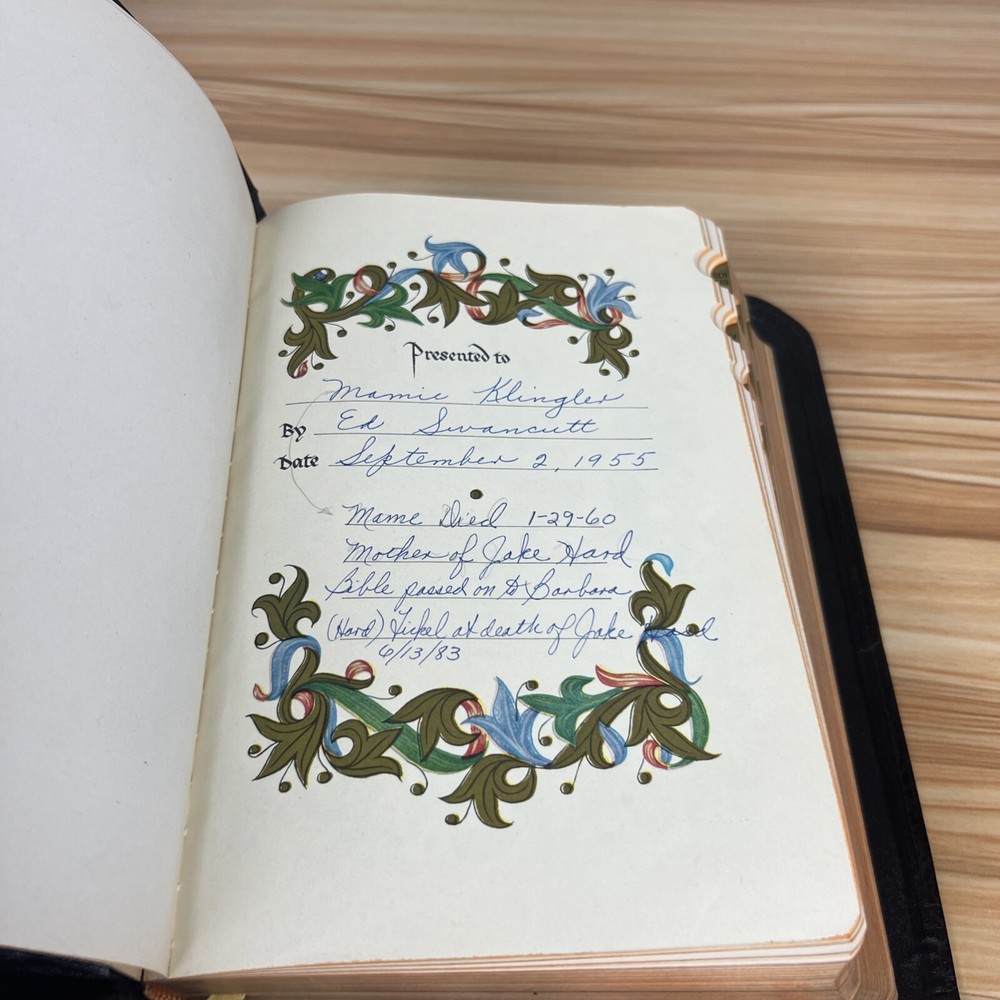 Presented to
Mamie Klingler
By Ed Swancutt
Date September 2, 1955
Mame Died 1-29-60
Mother of Jake Hard
Bible passed on to Barbara
(Hard) Fickel at death of Jake Hard
6/13/83